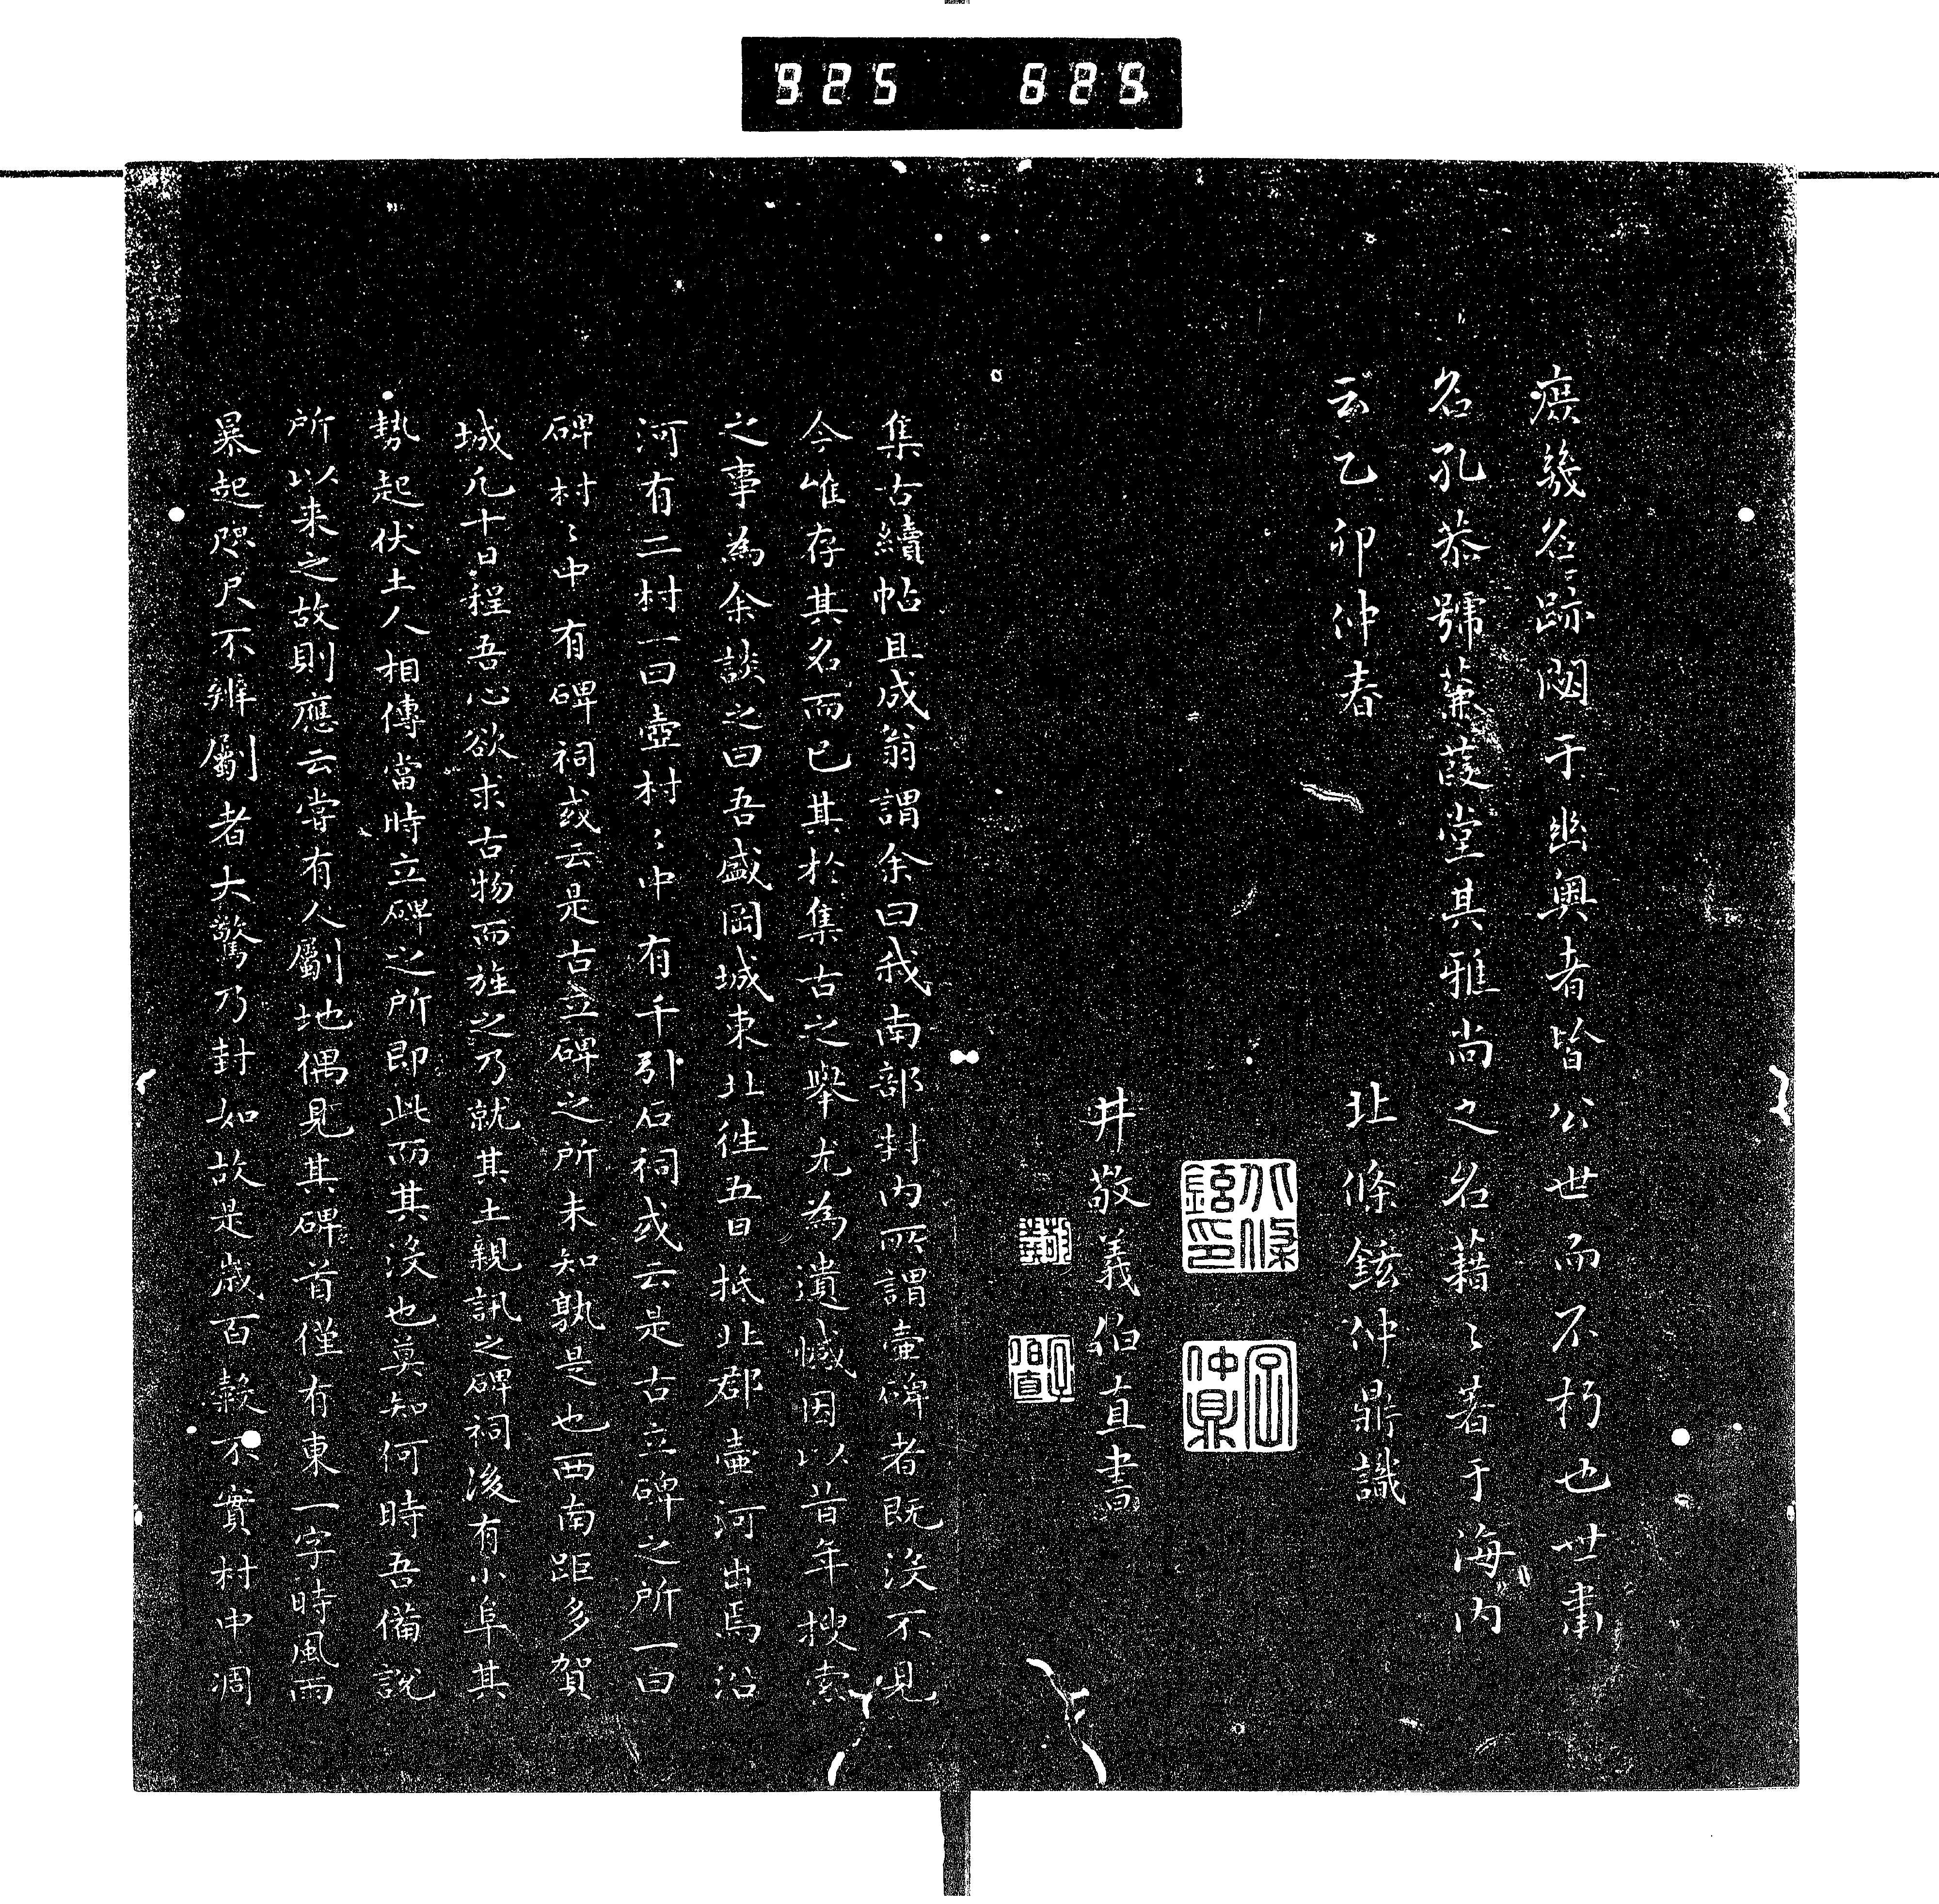 925 625
庶幾名跡閟于幽奥者皆公世而不朽也世肅
名孔恭號蒹葭堂其雅尚之名藉〻著于海内
云乙卯仲春
北條鉉仲鼎識
北條鉉印
仲鼎
井敬義伯直書
敬義
伯直
集古續帖且成翁謂余曰我南部封内所謂壷碑者既没不見
今唯存其名而已其於集古之舉尤為遺憾因以昔年搜索
之事為余談之曰吾盛岡城東北徃五日抵北郡壷河出焉沿
河有二村一曰壷村〻中有千引石祠或云是古立碑之所一曰
碑村〻中有碑祠或云是古立碑之所未知孰是也西南距多賀
城凢十日程吾心欲求古物而旌之乃就其土親訊之碑祠後有小阜其
勢起伏土人相傳當時立碑之所即此而其没也莫知何時吾備説
所以来之故則應云嘗有人劚地偶見其碑首僅有東一字時風雨
暴起咫尺不辨劚者大驚乃封如故是歳百穀不實村中凋